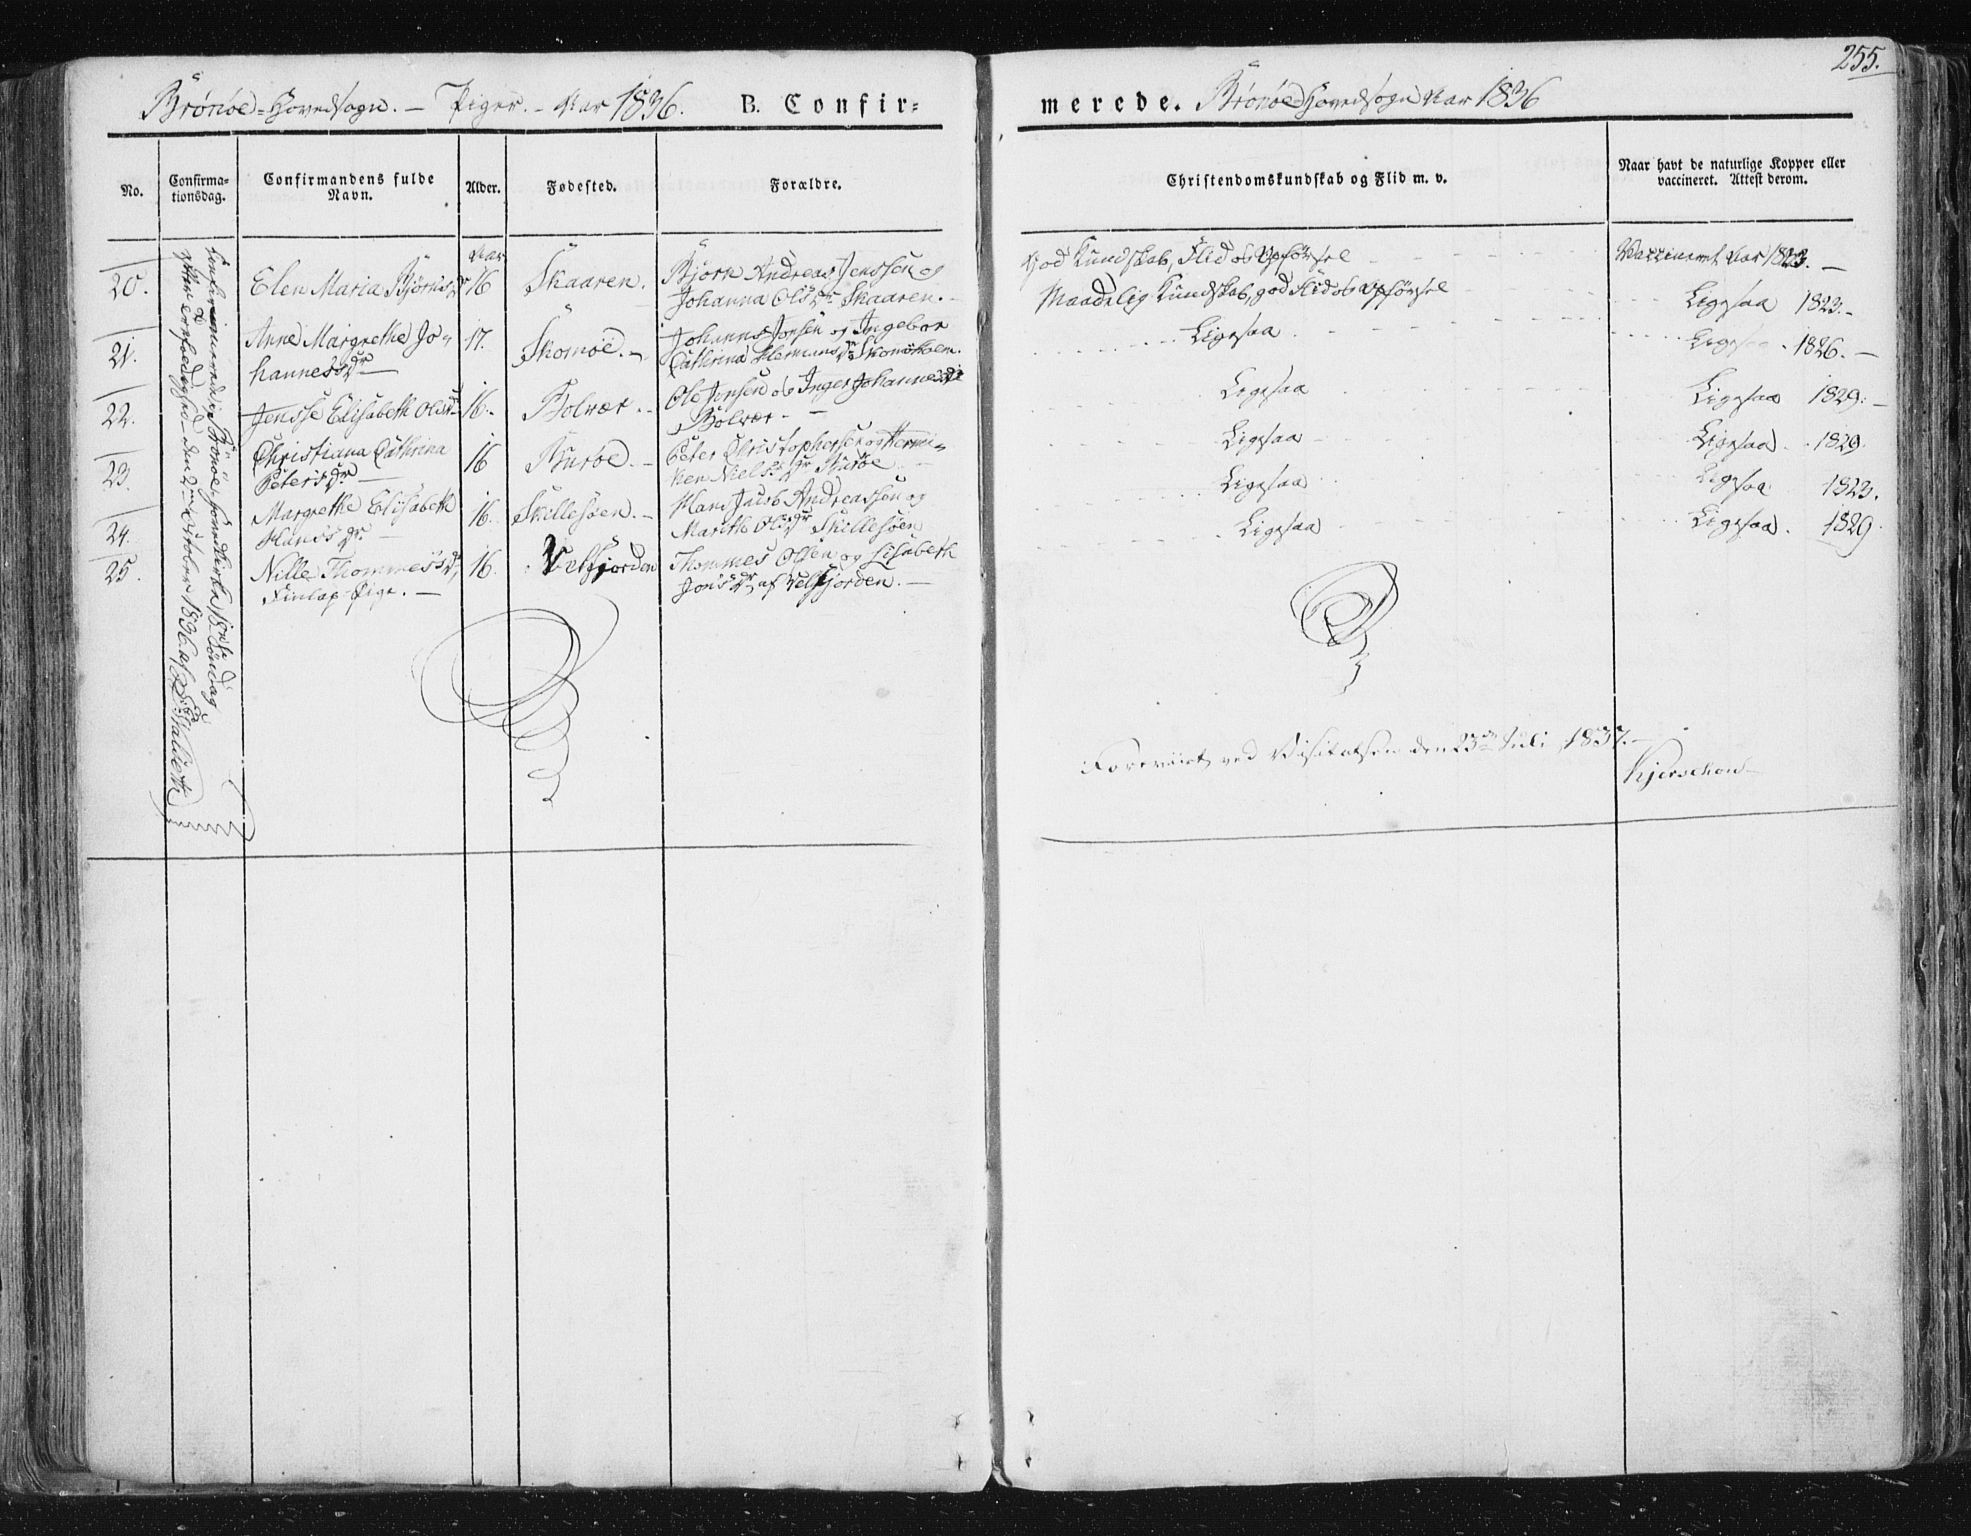 255.
Brönöe-Hovedsogn. – Piger. – Aar 1836. B. Confir-
merede. Brönöe Hovedsogn Aar 1836
No.
Confirma-
tionsdag.
Confirmandens fulde
Navn.
Alder.
Fødested.
Forældre.
Christendomskundskab og Flid m. v.
Naar havt de naturlige Kopper eller
vaccineret. Attest derom.
Confirmerede i Brönöe Hovedkirke 18de Söndag
efter Trefoldighed den 2den October 1836 af
20. Elen Maria Björnsdr Aar 16 Skaaren. Björn Andreas Jenssen og
Johanna Olsdr Skaaren. –
God Kundskab, Flid og Opførsel Vaccineret Aar 1823. –
21. Anne Margrethe Jo-
hannesdr – 17. Skomöe. – Johannes Jonsen og Ingebor
Cathrina Hermansdr Skomöe
Maadelig Kundskab, god Flid og Opførsel Ligesaa 1823. –
22. Jensse Elisabeth Olsdr 16. Bolvær. – Ole Jensen og Inger Johannesdr
Bolvær. –
Ligesaa Ligesaa 1826. –
23. Christiana Cathrina
Petersdr – 16 Buröe. – Peter Christophersen og Hermi-
ken Nielsdr Buröe. –
Ligesaa Ligesaa 1829. –
24. Margrethe Elisabeth
Hansdr – 16. Skillesöen. – Hans Jacob Andreassen og
Marith Olsdr Skillesöen
Ligesaa Ligesaa 1829.
25. Nille Thommesdr,
Finlap Pige. – 16. Velfjorden Thommes Olsen og Lisabeth
Jonsdr af Velfjorden. –
Ligesaa Ligesaa 1823.
Ligesaa Ligesaa 1829.
Foreviist ved Visitatsen den 23de Juli 1837. –
Kjerschow